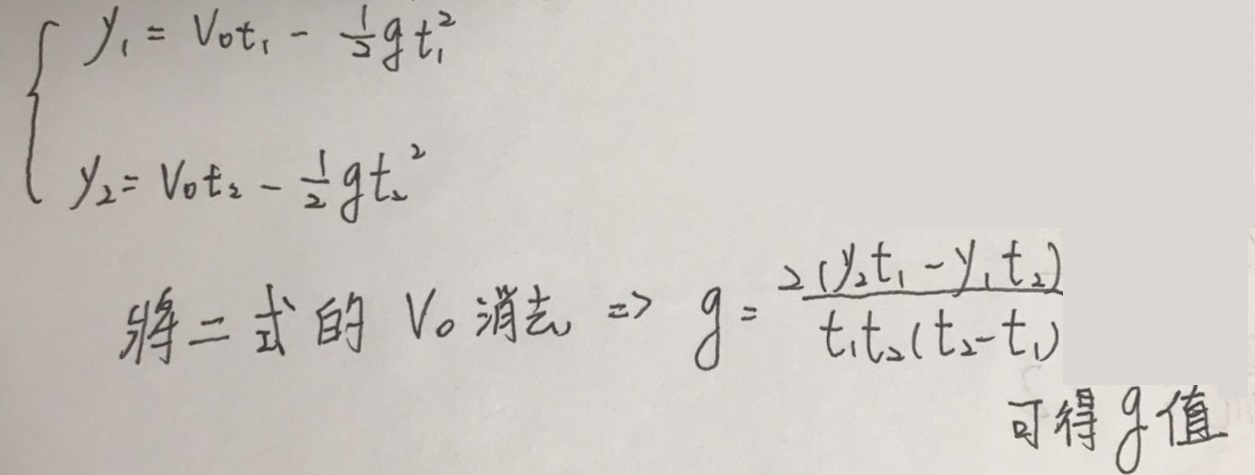 y₁ = V₀t₁ - ½gt₁²
y₂ = V₀t₂ - ½gt₂²
將二式的 V₀ 消去 => g = 2(y₂t₁ - y₁t₂) / t₁t₂(t₂ - t₁)
可得 g 值